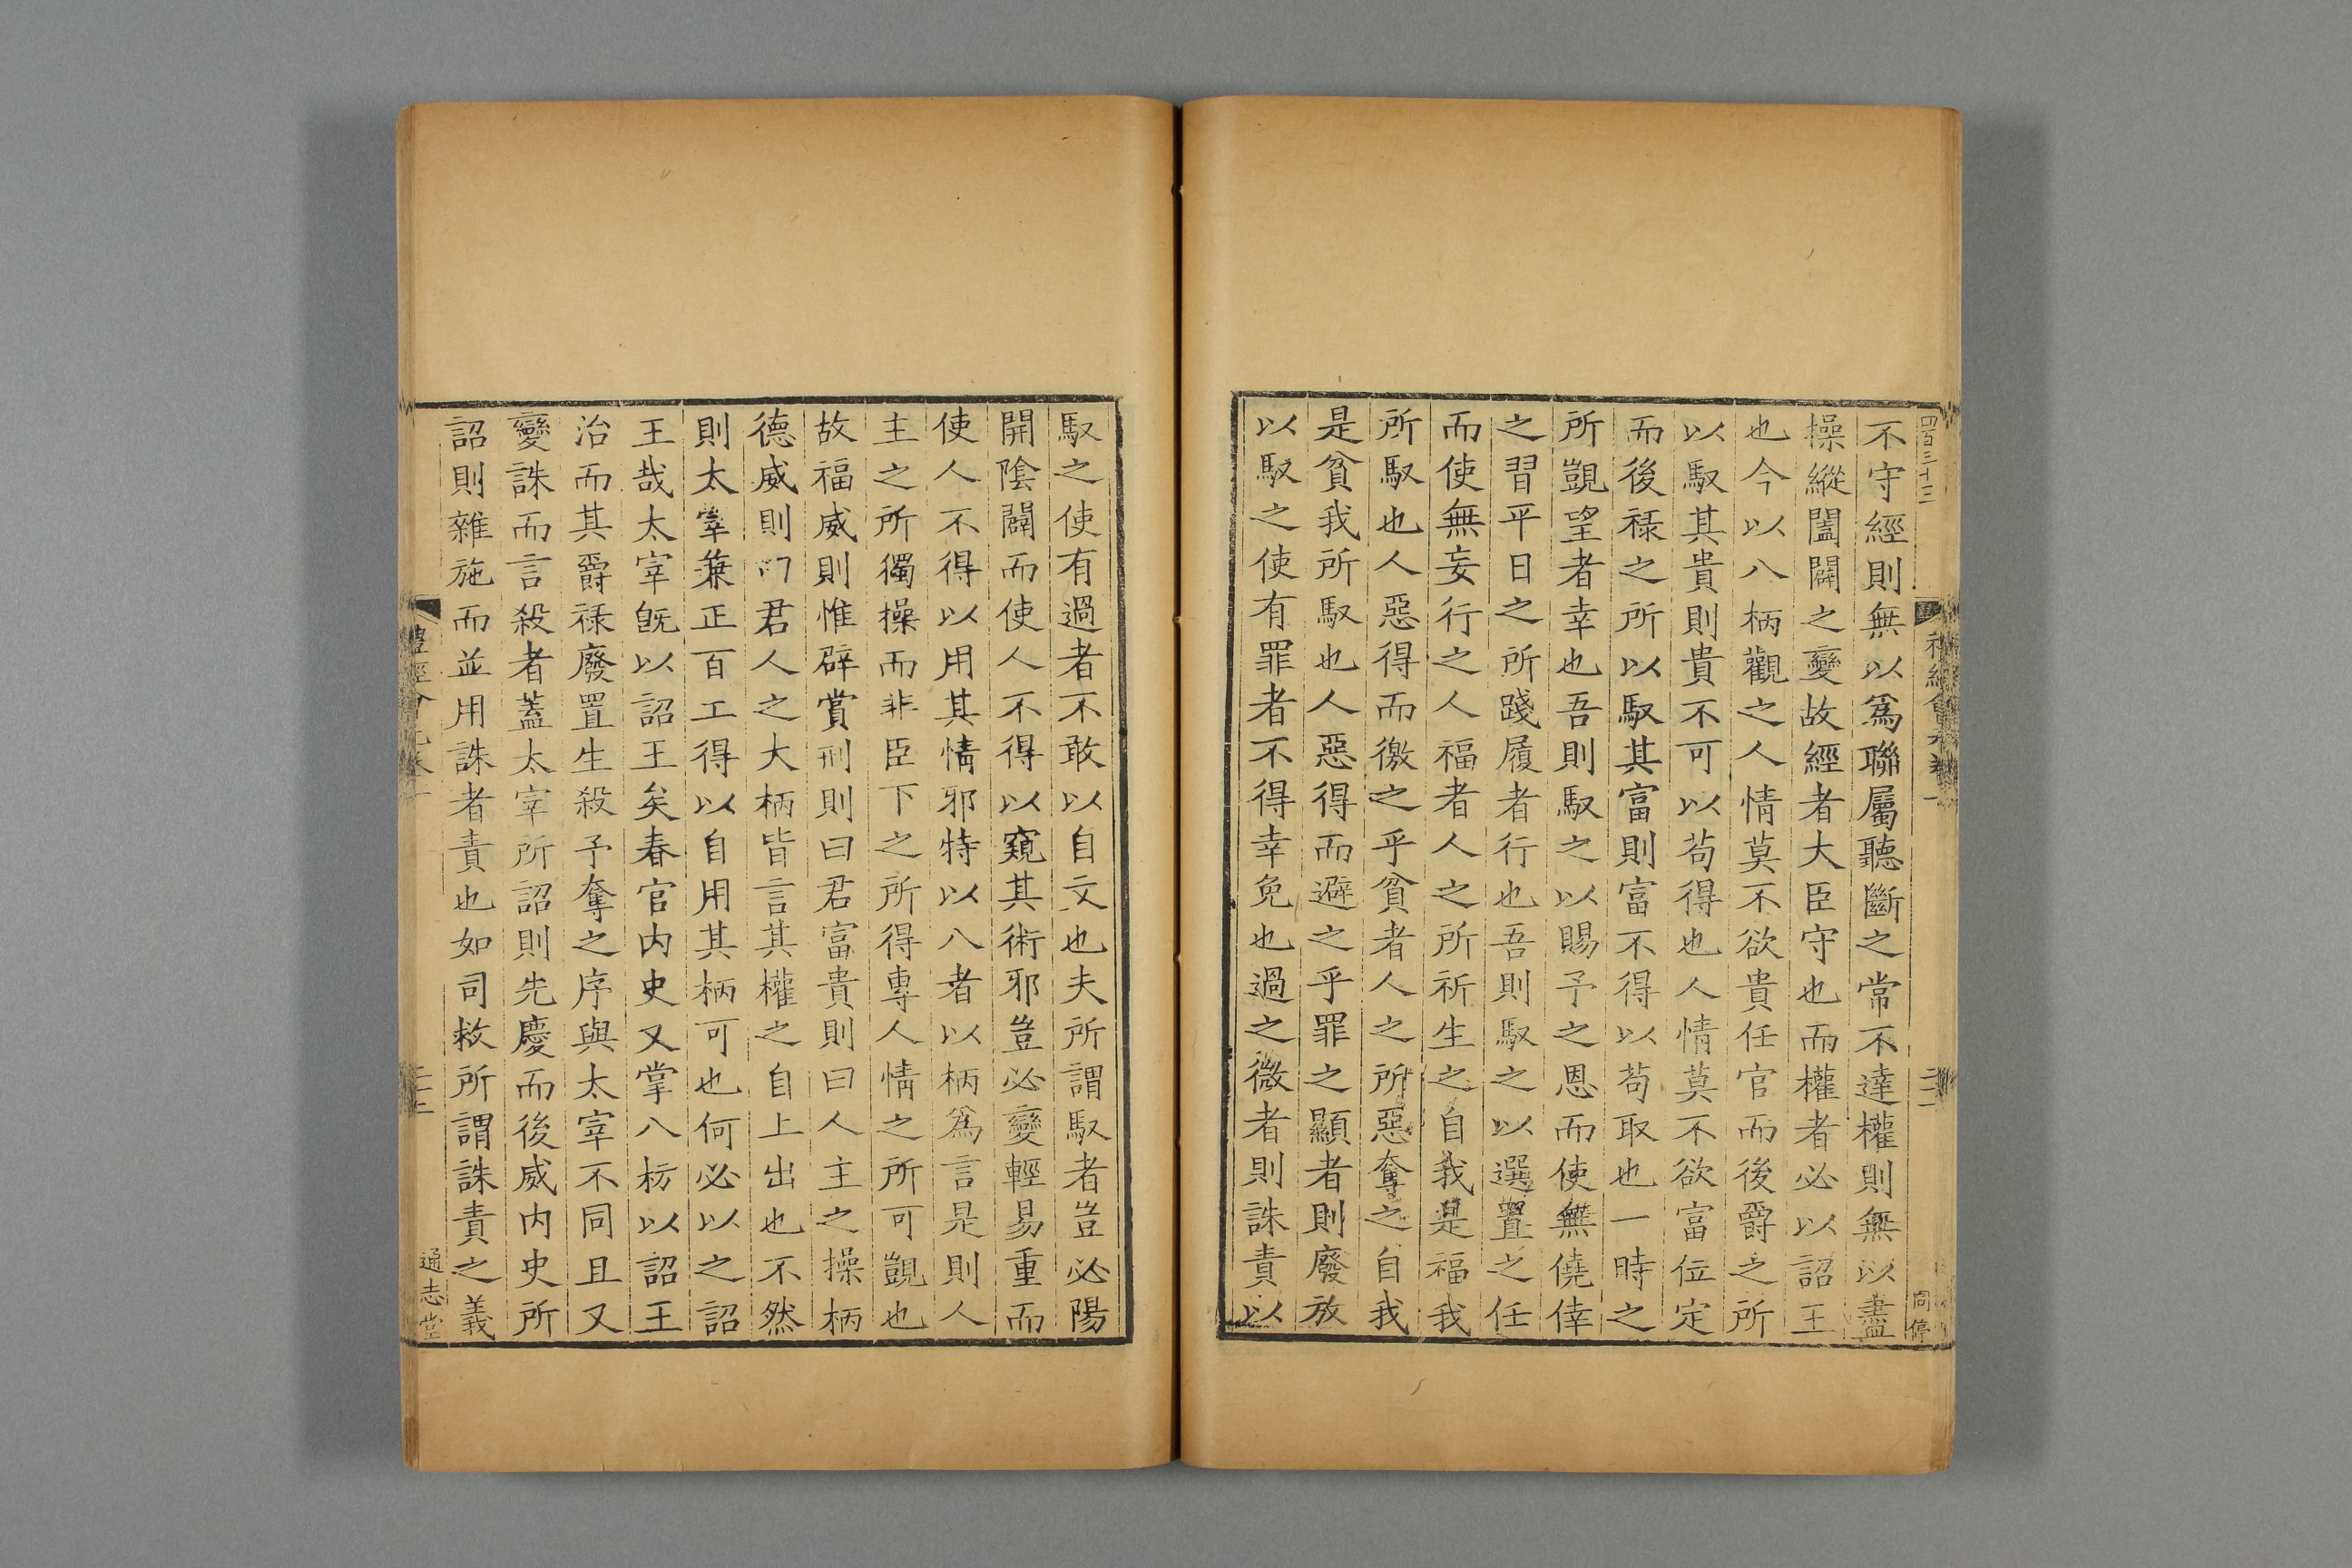 四百三十三
不守經則無以爲聯屬聽斷之常不達權則無以盡
操縱闔闢之變故經者大臣守也而權者必以詔王
也今以八柄觀之人情莫不欲貴任官而後爵之所
以馭其貴則貴不可以苟得也人情莫不欲富位定
而後祿之所以馭其富則富不得以苟取也一時之
所覬望者幸也吾則馭之以賜予之恩而使無僥倖
之習平日之所踐履者行也吾則馭之以選置之任
而使無妄行之人福者人之所祈生之自我是福我
所馭也人惡得而徼之乎貧者人之所惡奪之自我
是貧我所馭也人惡得而避之乎罪之顯者則廢放
以馭之使有罪者不得幸免也過之微者則誅責以
馭之使有過者不敢以自文也夫所謂馭者豈必陽
開陰闢而使人不得以窺其術邪豈必變輕易重而
使人不得以用其情邪特以八者以柄爲言是則人
主之所獨操而非臣下之所得專人情之所可覬也
故福威則惟辟賞刑則曰君富貴則曰人主之操柄
德威則曰君人之大柄皆言其權之自上出也不然
則太宰兼正百工得以自用其柄可也何必以之詔
王哉太宰旣以詔王矣春官內史又掌八枋以詔王
治而其爵祿廢置生殺予奪之序與太宰不同且又
變誅而言殺者蓋太宰所詔則先慶而後威內史所
詔則雜施而並用誅者責也如司救所謂誅責之義
禮經會元卷一
通志堂